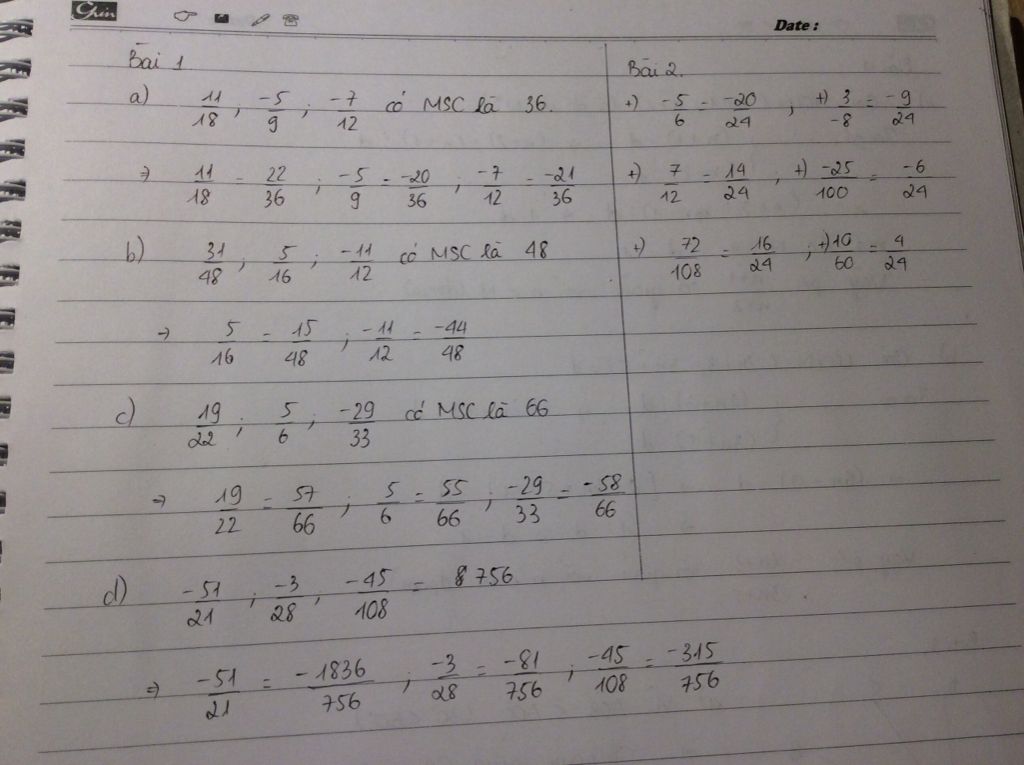 Grin
Date :
Bài 1
a) 11/18 ; -5/9 ; -7/12 có MSC là 36.
=> 11/18 = 22/36 ; -5/9 = -20/36 ; -7/12 = -21/36
b) 31/48 ; 5/16 ; -11/12 có MSC là 48
=> 5/16 = 15/48 ; -11/12 = -44/48
c) 19/22 ; 5/6 ; -29/33 có MSC là 66
=> 19/22 = 57/66 ; 5/6 = 55/66 ; -29/33 = -58/66
d) -51/21 ; -3/28 ; -45/108 = 756
=> -51/21 = -1836/756 ; -3/28 = -81/756 ; -45/108 = -315/756
Bài 2.
+) -5/6 = -20/24 ; +) 3/-8 = -9/24
+) 7/12 = 14/24 ; +) -25/100 = -6/24
+) 72/108 = 16/24 ; +) 10/60 = 4/24